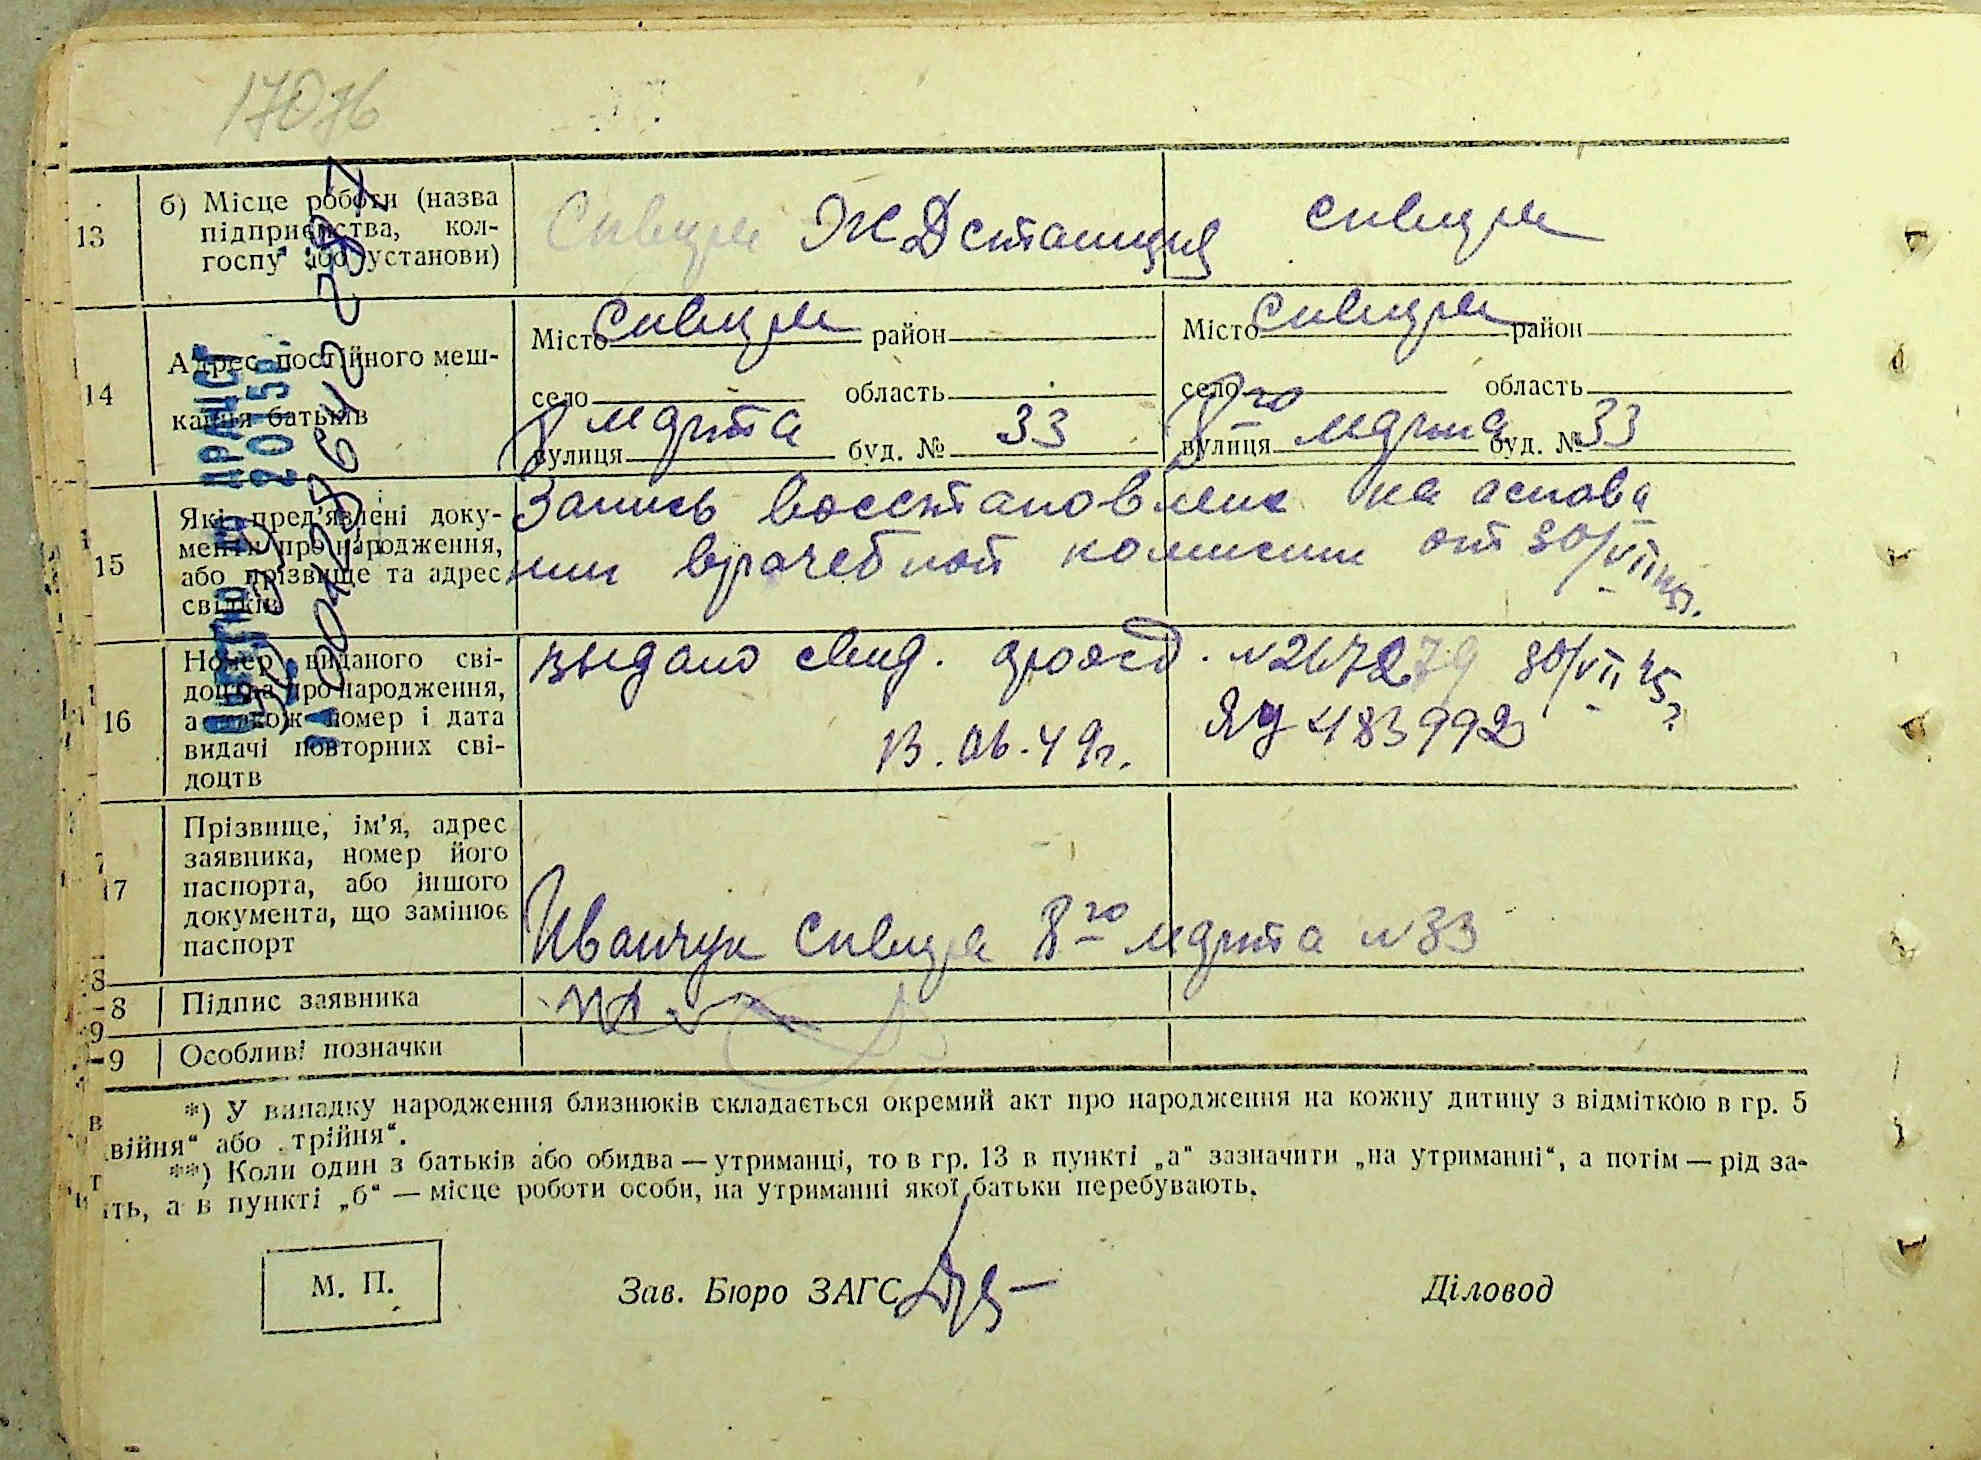 17076
13
б) Місце роботи (назва
підприємства, кол-
госпу або установи)
ЖД станция
14
Адрес постійного меш-
кання батьків
Місто район
село область
8 марта
вулиця буд. № 33
Місто район
село область
8го марта
вулиця буд. № 33
15
Які пред'явлені доку-
менти про народження,
або прізвище та адрес
свідків
Запись восстановлене на основа
нии врачебной комисии от 30/VII 45г.
16
Номер виданого сві-
доцтва про народження,
а також номер і дата
видачі повторних сві-
доцтв
выдано свид. рожд. № 267279 30/VII 45г
13.06.49г. ЯУ 483992
17
Прізвище, ім'я, адрес
заявника, номер його
паспорта, або іншого
документа, що замінює
паспорт
Иванчук 8го марта № 33
-8
Підпис заявника
-9
Особливі позначки
*) У випадку народження близнюків складається окремий акт про народження на кожну дитину з відміткою в гр. 5
війня“ або „трійня“.
**) Коли один з батьків або обидва — утриманці, то в гр. 13 в пункті „а“ зазначити „на утриманні“, а потім — рід за-
ть, а в пункті „б“ — місце роботи особи, на утриманні якої батьки перебувають.
М. П.
Зав. Бюро ЗАГС
Діловод